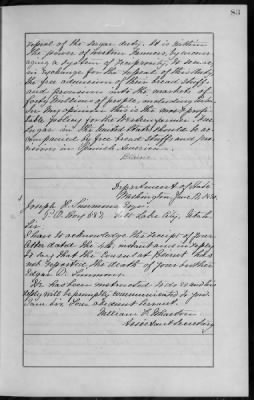 83
repeal of the sugar duty. It is within
the power of western farmers, by encour-
aging a system of reciprocity, to secure
in exchange for the repeal of this duty
the free admission of their bread stuffs
and provisions into the markets of
forty millions of people, including Cuba.
In my opinion this is the most profi-
table policy for the Western farmer. Free
sugar in the United States should be ac-
companied by free bread stuffs and pro-
visions in Spanish America.
Blaine
Department of State
Washington, June 1890.
Joseph H. Simmons, Esqr.
P. O. Box 682, Salt Lake City, Utah
Sir
I have to acknowledge the receipt of your
letter dated the 4th instant and in reply
to say that the Consul at Beirut has
not reported the death of your brother
Edgar D. Simmons.
He has been instructed to do so and his
reply will be promptly communicated to you.
I am sir, Your obedient servant,
William F. Wharton
Assistant Secretary